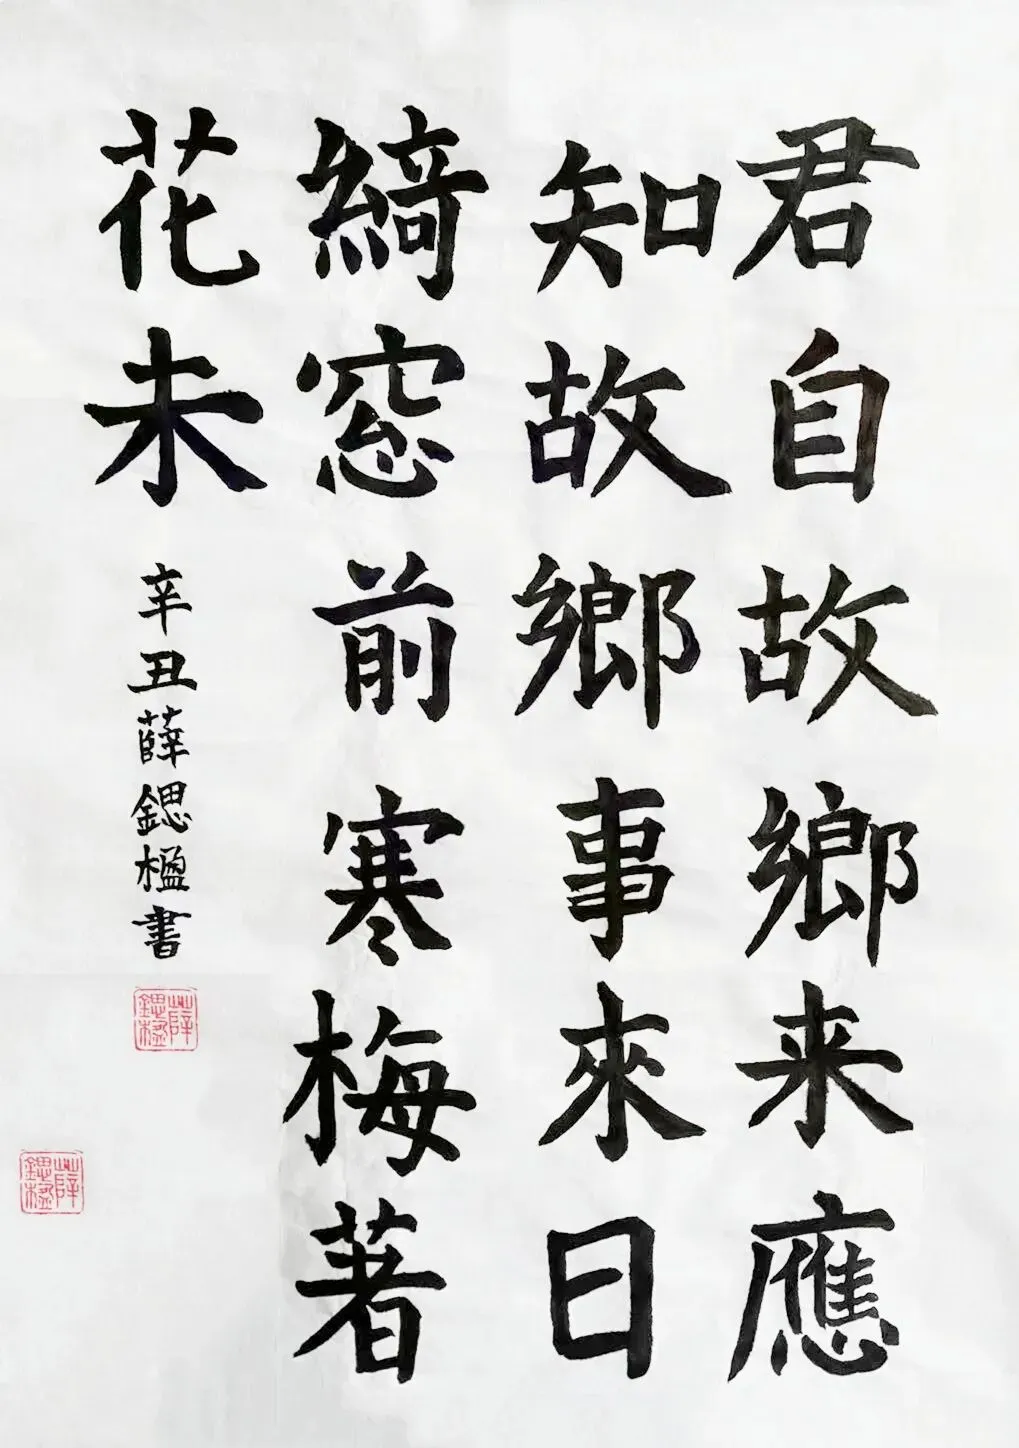 君自故鄉来應
知故鄉事來日
綺窓前寒梅著
花未
辛丑薛鍶楹書
薛鍶楹
薛鍶楹